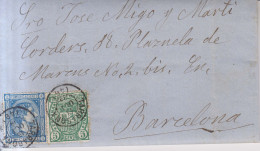 Sro Jose Migo y Marti
Corders, R. Plazuela de
Marcus No. 2. bis, En,
Barcelona